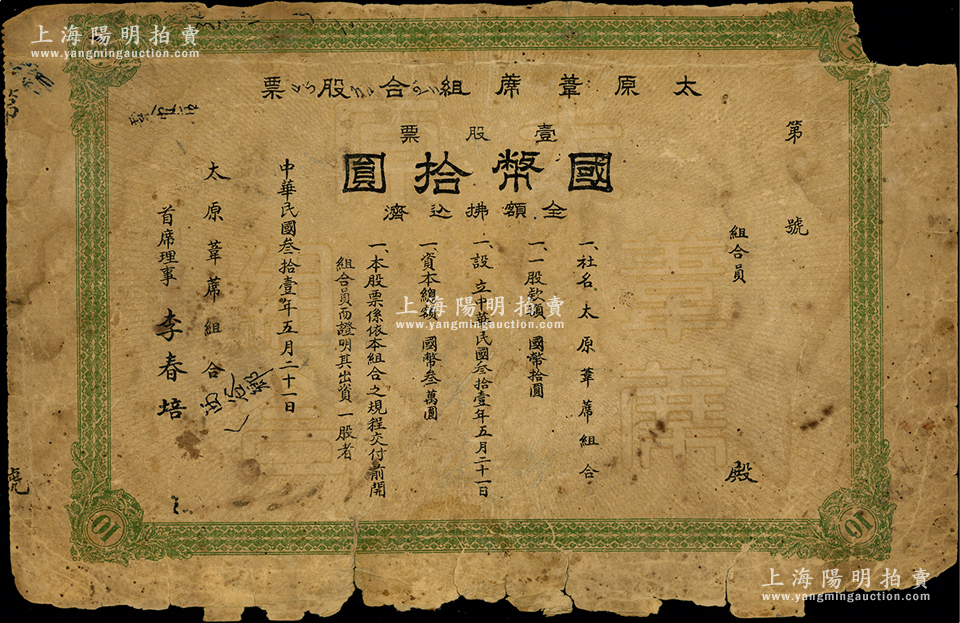 上海陽明拍賣
www.yangmingauction.com
太原葦蓆組合股票
壹股票
國幣拾圓
全額拂込濟
第
號
組合員
殿
一、社名 太原葦蓆組合
一、一股款額 國幣拾圓
一、設立 中華民國叁拾壹年五月二十一日
一、資本總額 國幣叁萬圓
一、本股票係依本組合之規程交付前開
組合員而證明其出資一股者
中華民國叁拾壹年五月二十一日
太原葦蓆組合
首席理事 李春培
第
號
10
10
上海陽明拍賣
www.yangmingauction.com
上海陽明拍賣
www.yangmingauction.com